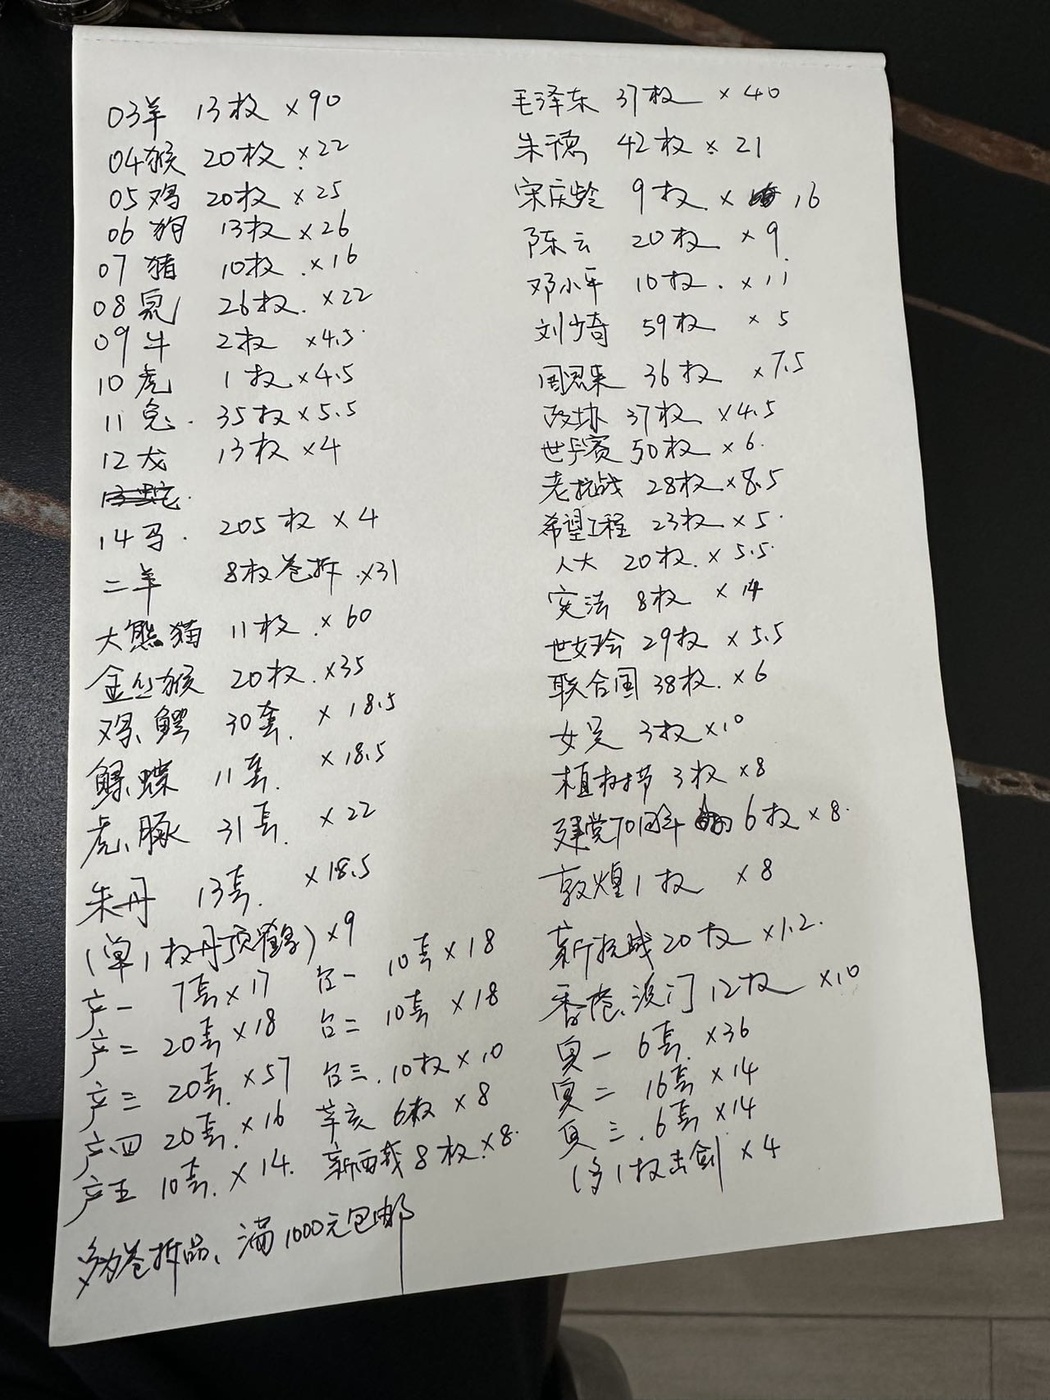 03羊 13枚 ×90
04猴 20枚 ×22
05鸡 20枚 ×25
06狗 13枚 ×26
07猪 10枚 ×16
08鼠 26枚 ×22
09牛 2枚 ×4.5
10虎 1枚 ×4.5
11兔 35枚 ×5.5
12龙 13枚 ×4
14马 205枚 ×4
二羊 8枚卷拆 ×31
大熊猫 11枚 ×60
金丝猴 20枚 ×35
30套 ×18.5
蝶 11套 ×18.5
虎、豚 31套 ×22
朱丹 13套 ×18.5
(单1枚丹顶鹤) ×9
产一 7套×17
产二 20套×18
产三 20套×57
产四 20套×16
产五 10套×14
台一 10套×18
台二 10套×18
台三 10枚×10
辛亥 6枚×8
新西藏 8枚×8
多为卷拆品、满1000元包邮
毛泽东 37枚 ×40
朱德 42枚 ×21
宋庆龄 9枚 × 16
陈云 20枚 ×9
邓小平 10枚 ×11
刘少奇 59枚 ×5
周恩来 36枚 ×7.5
政协 37枚 ×4.5
世乒赛 50枚 ×6
老抗战 28枚×8.5
希望工程 23枚×5
人大 20枚×5.5
宪法 8枚 ×14
世妇会 29枚 ×5.5
联合国 38枚 ×6
女足 3枚×10
植树节 3枚 ×8
建党70周年 6枚×8
敦煌1枚 ×8
新抗战20枚×1.2
香港、澳门12枚 ×10
奥一 6套 ×36
奥二 16套 ×14
奥三 6套×14
1枚击剑 ×4